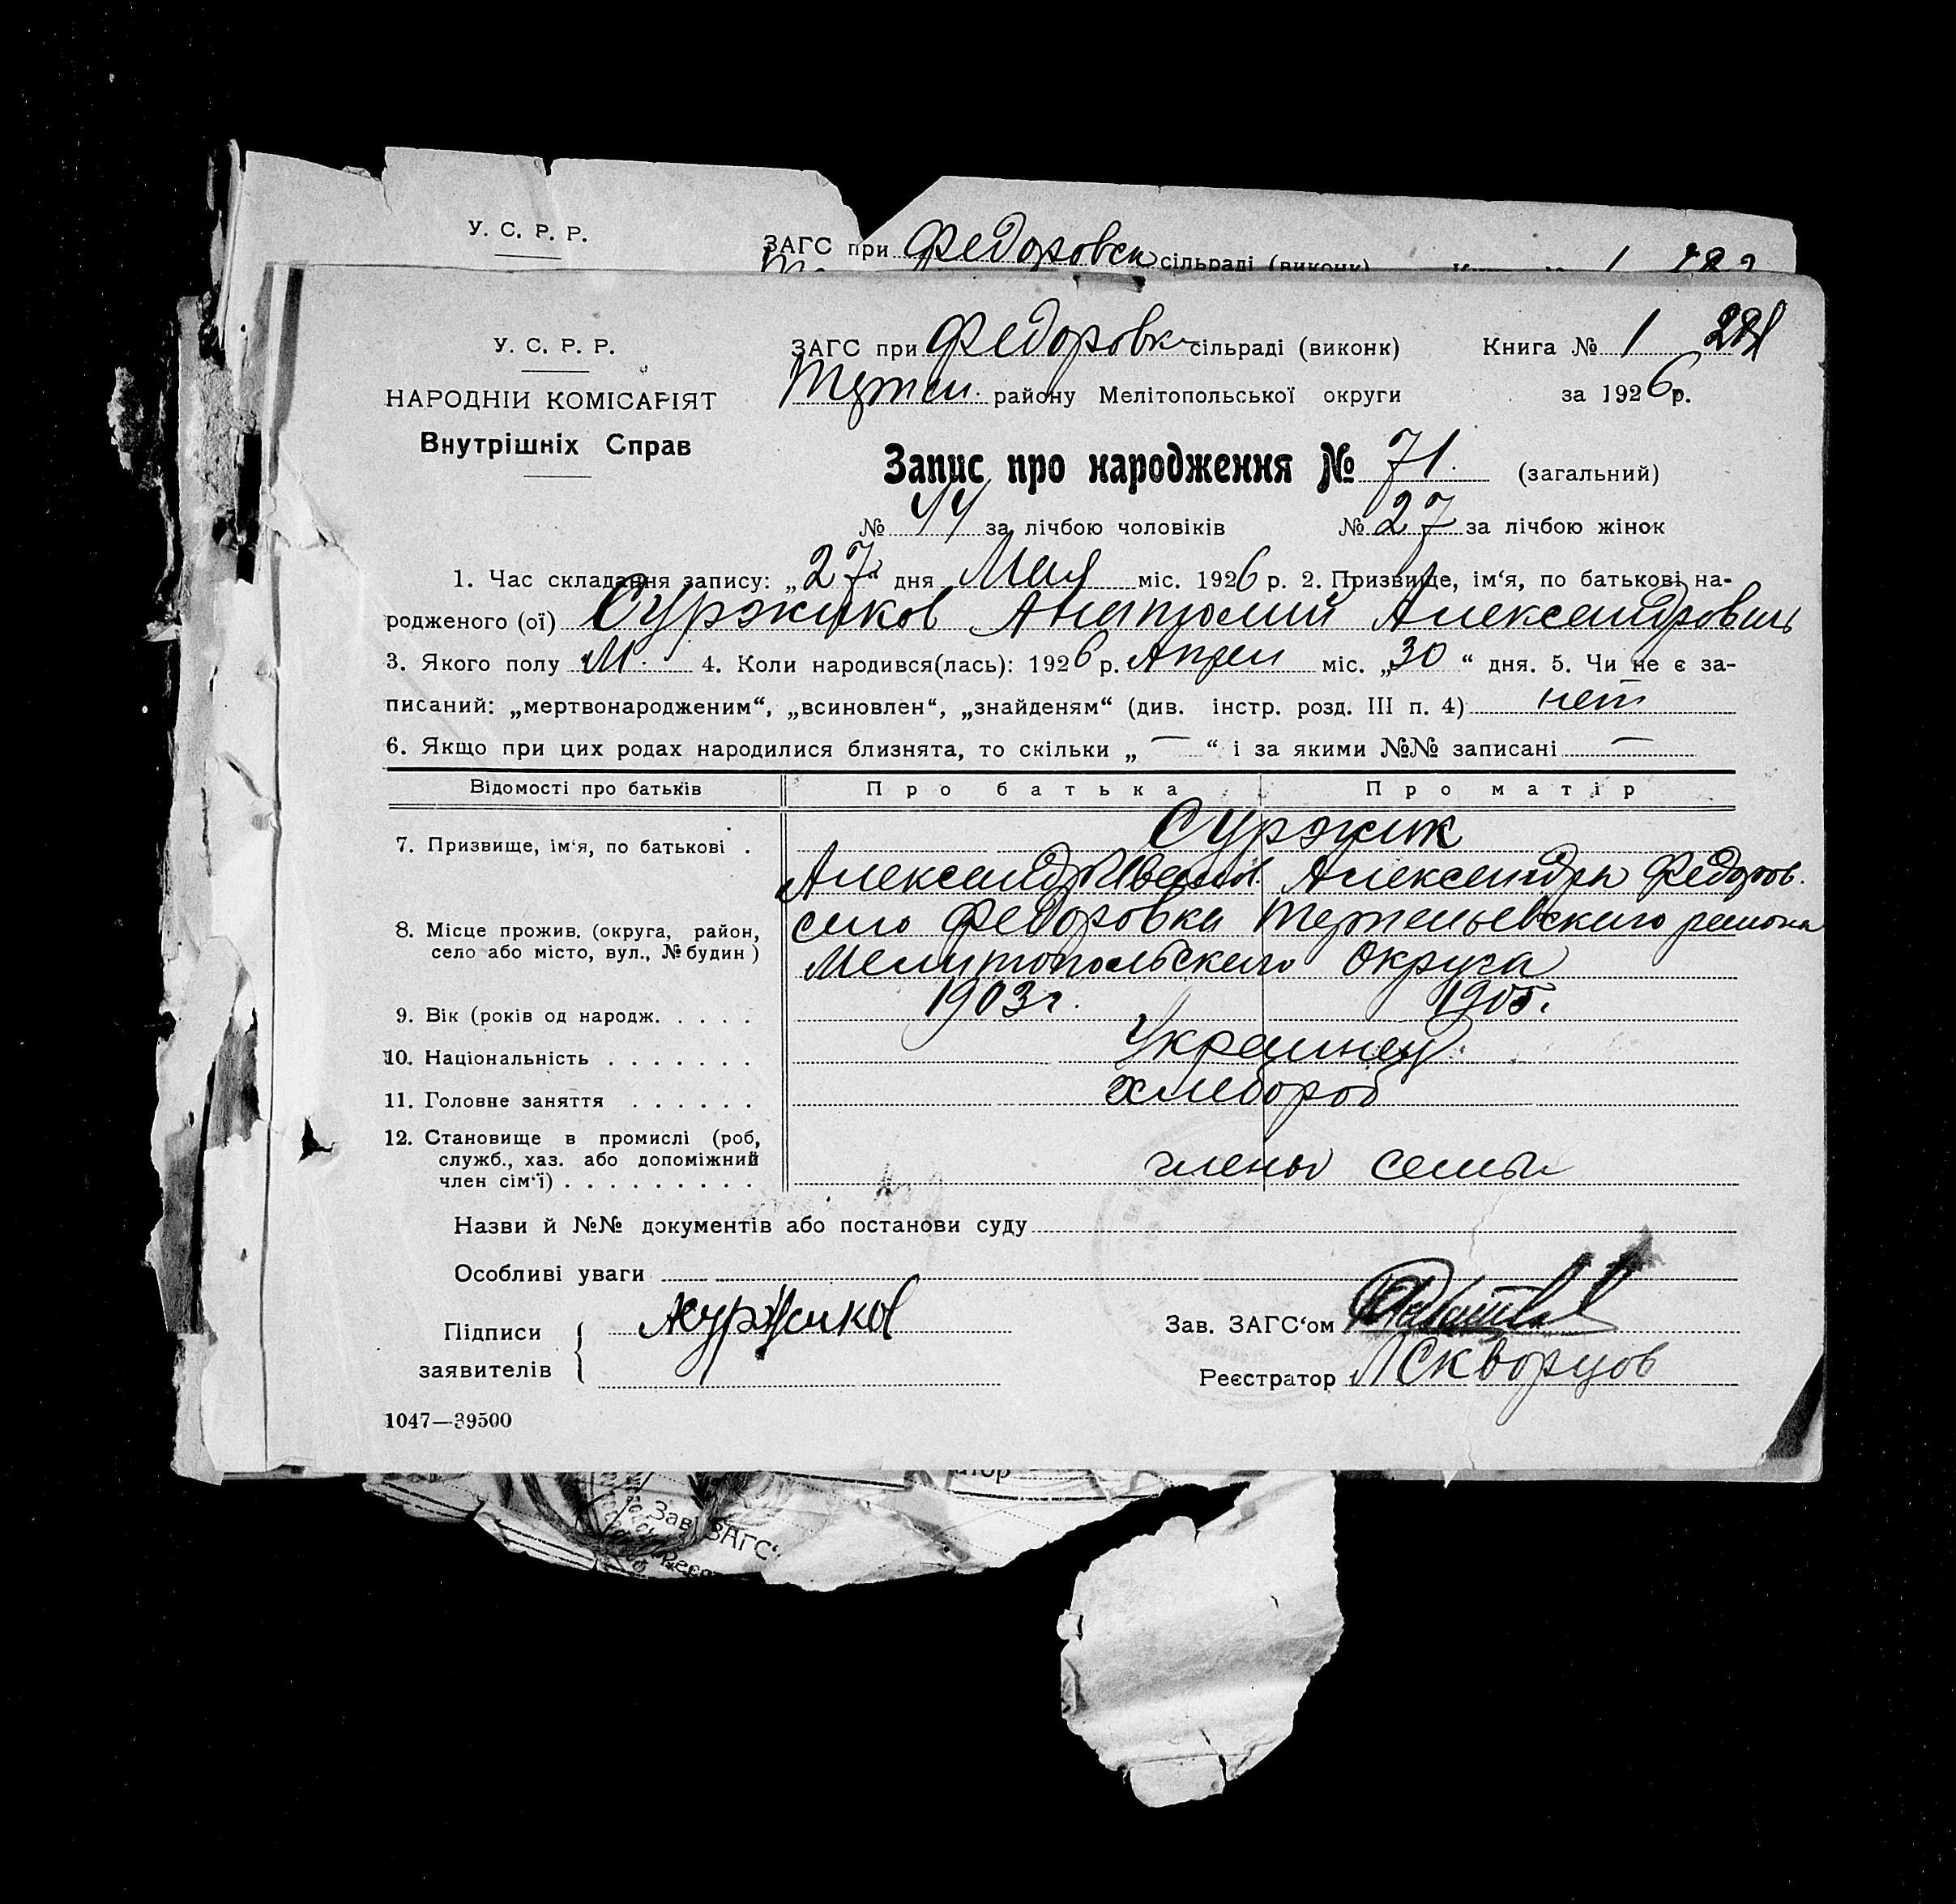 У. С. Р. Р.
ЗАГС при Федоровск сільраді (виконк)
1
У. С. Р. Р.
ЗАГС при Федоровк сільраді (виконк) Книга № 1
НАРОДНІЙ КОМІСАРІЯТ
району Мелітопольської округи за 1926 р.
Внутрішніх Справ
Запис про народження № 71. (загальний)
№ 44 за лічбою чоловіків № 27 за лічбою жінок
1. Час складання запису: „27“ дня Мая міс. 1926 р. 2. Призвище, ім‘я, по батькові на-
родженого (ої) Суржиков Анатолий Александрович
3. Якого полу М. 4. Коли народився(лась): 1926 р. Апрел міс. „30“ дня. 5. Чи не є за-
писаний: „мертвонародженим“, „всиновлен“, „знайденям“ (див. інстр. розд. III п. 4) нет
6. Якщо при цих родах народилися близнята, то скільки „—“ і за якими №№ записані —
Відомості про батьків Про батька Про матір
Суржик
7. Призвище, ім‘я, по батькові .
Александр Иванов. Александра Федоров.
8. Місце прожив. (округа, район,
село або місто, вул., № будин)
село Федоровка района
Мелитопольского Округа
9. Вік (років од народж. . . . . 1903 г. 1905 г.
10. Національність . . . . . . . Украинец
11. Головне заняття . . . . . . хлебороб
12. Становище в промислі (роб,
служб., хаз. або допоміжний
член сім‘ї) . . . . . . . . . члены семьи
Назви й №№ документів або постанови суду
Особливі уваги
Підписи
заявителів
Зав. ЗАГС‘ом
Реєстратор Скворцов
1047—39500
Зав. ЗАГС‘